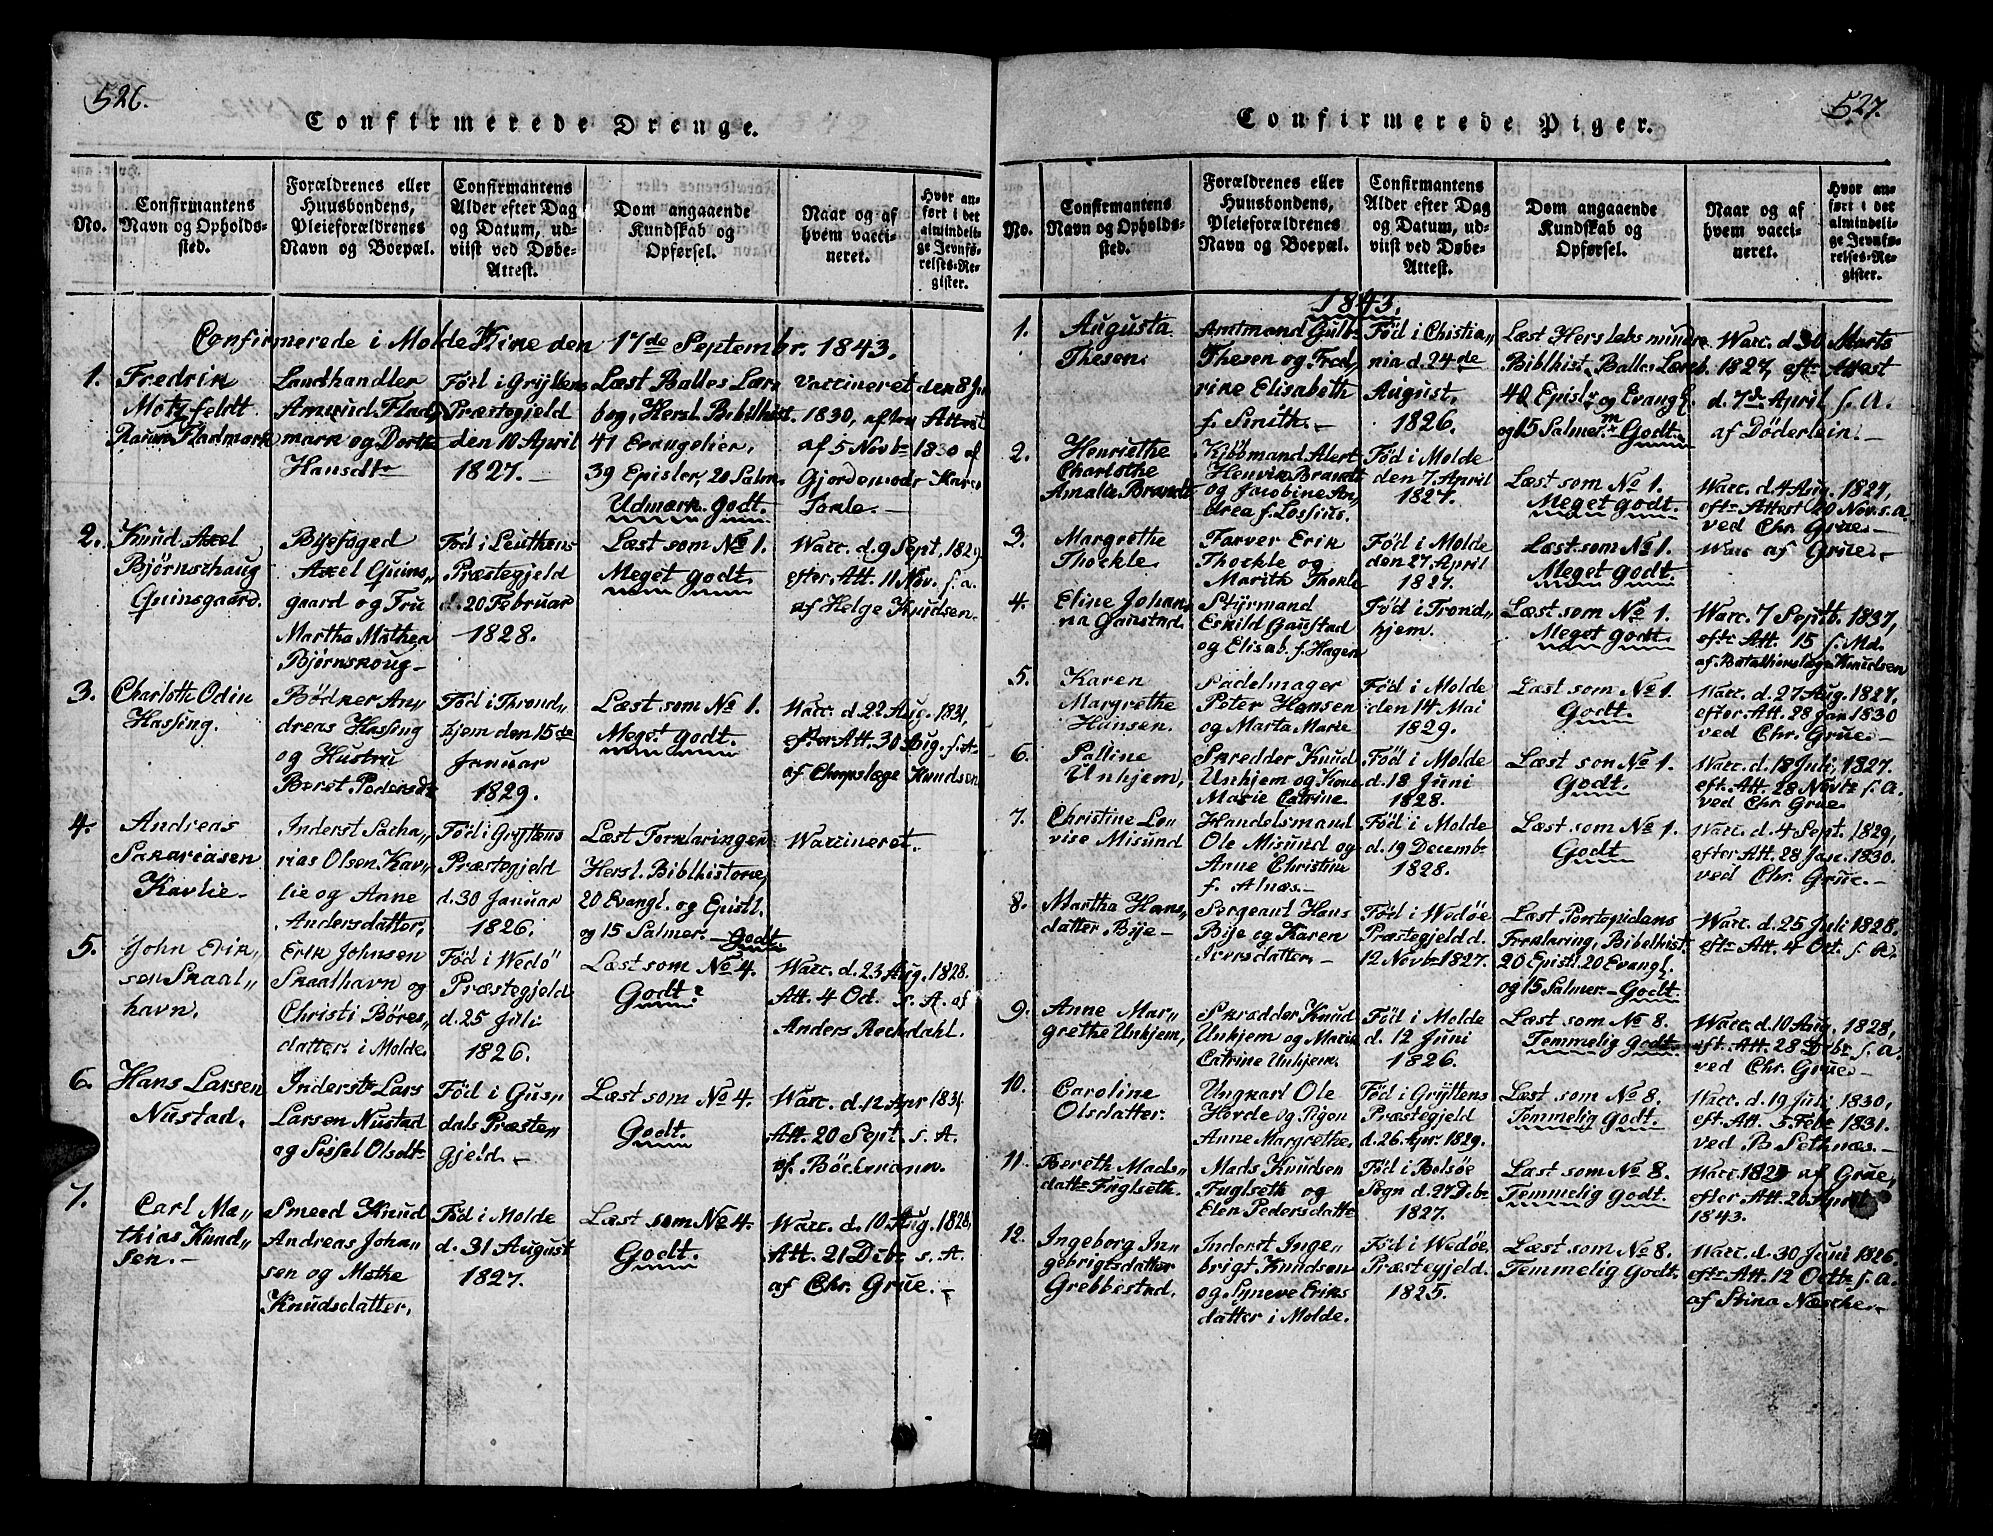 526.
Confirmerede Drenge.
No.
Confirmantens
Navn og Opholds-
sted.
Forældrenes eller
Huusbondens,
Pleieforældrenes
Navn og Boepæl.
Confirmantens
Alder efter Dag
og Datum, ud-
viist ved Døbe-
Attest.
Dom angaaende
Kundskab og
Opførsel.
Naar og af
hvem vacci-
neret.
Hvor an-
ført i det
almindeli-
ge Jevnfø-
relses-Re-
gister.
Confirmerede i Molde Kirke den 17de Septembr. 1843.
1.
Fredrik
Motzfeldt
Fladmark
Landhandler
Amund Flad-
mark og Dorthe
Hansdtr
Fød i Gryttens
Præstegjeld
den 10 April
1827. –
Læst Balles Lær
bog, Hersl. Bibelhist.
41 Evangelier,
39 Epistler, 20 Salm.
Udmærk. godt.
Vaccineret den 8 Jun
1830, efter Attest
af 5 Novbr 1830 af
Gjordemoder Karen
Torle. –
2.
Knud Axel
Bjørnschaug
Quinsgaard.
Byefoged
Axel Quins„
gaard og Fru
Martha Mathea
Bjørnskoug –
Fød i Leuthens
Præstegjeld
d. 20 Februar
1828.
Læst som No 1.
Meget godt.
Vacc. d. 9 Sept. 1829,
efter Att. 11 Nov. s. a.
af Helge Knudsen.
3.
Charlotte Odin
Hassing.
Bødker An„
dreas Hassing
og Hustru
Beret Pedersdtr
Fød i Thrond„
hjem den 15de
Januar
1829.
Læst som No 1.
Meget godt.
Vacc. d. 22 Aug. 1831,
efter Att. 30 Aug. s. A.
af Chorpslæge Knudsen
4.
Andreas
Sakariasen
Kavlie –
Inderst Sacha„
rias Olsen Kav„
lie og Anne
Andersdatter,
Fød i Gryttens
Præstegjeld
d. 30 Januar
1826.
Læst Forklaringen
Hersl. Biblhistorie,
20 Evangl. og Epistl.
og 15 Salmer. – Godt.
Vaccineret.
5.
John Erik„
sen Skaal„
havn.
Erik Johnsen
Skaalhavn og
Christi Børes„
datter. i Molde.
Fød i Wedö
Præstegjeld
d. 25 Juli
1826.
Læst som No 4.
Godt.
Vacc. d. 23 Aug. 1828.
Att. 4 Oct. s. A. af
Anders Rechdahl.
6.
Hans Larsen
Nustad.
Inderst Lars
Larsen Nustad
og Sissel Olsdtr
Fød i Gus„
dals Præste„
gjeld. –
Læst som No 4.
Godt.
Vacc. d. 12 Apr 1831
Att. 20 Sept. s. A.
af. Böchmann.
7.
Carl Ma„
thias Knud„
sen. –
Smeed Knud
Andreas Joha„
sen og Mathe
Knudsdatter,
Fød i Molde
d. 31 August
1827.
Læst som No 4.
Godt.
Vacc. d. 10 Aug. 1828,
Att. 21 Dcbr s. A.
af Chr. Grue. –
527.
Confirmerede Piger.
No.
Confirmantens
Navn og Opholds-
sted.
Forældrenes eller
Huusbondens,
Pleieforældrenes
Navn og Boepæl.
Confirmantens
Alder efter Dag
og Datum, ud-
viist ved Døbe-
Attest.
Dom angaaende
Kundskab og
Opførsel.
Naar og af
hvem vacci-
neret.
Hvor an-
ført i det
almindeli-
ge Jevnfø-
relses-Re-
gister.
1843.
1.
Augusta
Thesen.
Amtmand Gulb„
Thesen og Fred„
rike Elisabeth
f. Smith. –
Fød i Christia„
nia d. 24de
August,
1826.
Læst Herslebs mindre
Biblhist. Balles Læreb.
40 Epistl. og Evangl.
og 15 Salmer. Godt.
Vacc. d. 30 Marts
1827, eft. Attest
d. 7de April s. A.
af Döderlein. –
2.
Henriethe
Charlothe
Amalie Brandt
Kjøbmand Alert
Henrik Brandt
og Jacobine An„
drea f. Lossius.
Fød i Molde
den 7. April
1827.
Læst som No 1.
Meget godt.
Vacc. d. 4 Aug. 1827,
eftr Attest 20 Nov. s. a.
ved Chr. Grue. –
3.
Margrethe
Thockle.
Farver Erik
Thockle og
Marith Thokle
Fød i Molde
den 27 April
1827.
Læst som No 1.
Meget godt.
Vac af Grue. –
4.
Eline Johan„
na Gaustad.
Styrmand
Eskild Gaustad
og Elisab. f. Hagen
Fød i Trond„
hjem.
Læst som No 1.
Meget godt.
Vacc. 7 Septb. 1837,
eftr Att. 15 s. Md.
af. Batalionslæge Knudsen
5.
Karen
Margrethe
Hansen.
Sadelmager
Peter Hansen
og Marta Marie
Fød i Molde
den 14. Mai
1829.
Læst som No 1.
Godt.
Vacc. d. 27 Aug. 1827,
efter Att. 28 Jan 1830
ved Chr. Grue. –
6.
Palline
Unhjem,
Skredder Knud
Unhjem og Kone
Marie Catrine.
Fød i Molde
d. 18 Juni
1828.
Læst som No 1.
Godt.
Vacc. d. 18 Juli, 1827.
eft. Att. 28 Novbr s. a.
ved Chr. Grue. –
7.
Christine Lo„
vise Misund
Handelsmand
Ole Misund og
Anne Christine
f. Alnæs. –
Fød i Molde
d. 19 Decembr
1828.
Læst som No 1.
Godt
Vacc. d. 4 Sept. 1829,
efter Att. 28 Jan. 1830.
ved Chr. Grue. –
8.
Martha Hans„
datter Bije –
Sergeant Hans
Bije og Karen
Iversdatter. –
Fød i Wedøe
Præstegjeld d.
12 Novbr 1827.
Læst Pontopidans
Forklaring, Bibelhist.
20 Epistl. 20 Evangl.
og 15 Salmer – Godt.
Vacc. d. 25 Juli 1828.
eftr Att. 4 Oct. s. A.
9.
Anne Mar„
grethe Unhjem,
Skrædder Knud
Unhjem og Marie
Catrine Unhjem.
Fød i Molde
d. 12 Juni
1826.
Læst som No 8.
Temmelig Godt.
Vacc. d. 10 Aug. 1828,
eft. Att. 28 Dcbr s. a.
ved Chr. Grue. –
10.
Caroline
Olsdatter.
Ungkarl Ole
Horde og Pigen
Anne Margrethe.
Fød i Gryttens
Præstegjeld
d. 26 Apr. 1829.
Læst som No 8.
Temmelig Godt.
Vacc. d. 19 Juli 1830,
eft. Att. 5 Febr 1831.
ved B. Sethnæs. –
11.
Bereth Mads„
dattr Fuglseth.
Mads Knudsen
Fuglseth og
Elen Pedersdattr
Fød i Bolsøe
Sogn d. 27 Dcbr
1827.
Læst som No 8.
Temmelig Godt.
Vacc 1827 af Grue,
efter Att. 26 April
1843.
12.
Ingeborg In„
gebrigtsdatter
Grebbestad.
Inderst Inge„
brigt Knudsen
og Syneve Eriks
datter i Molde.
Fød i Wedøe
Præstegjeld.
1825.
Læst som No 8.
Temmelig Godt.
Vacc. d. 30 Juni 1826.
eftr Att. 12 Octbr s. a.
af Stina Næsche. –